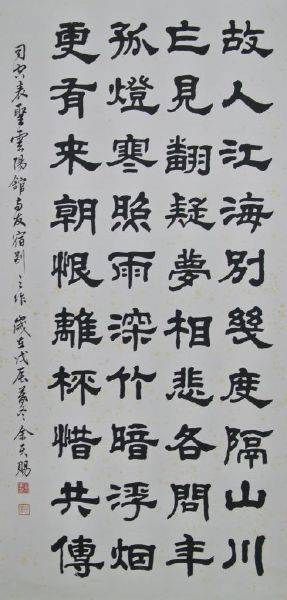 故人江海別幾度隔山川
乍見翻疑夢相悲各問年
孤燈寒照雨深竹暗浮烟
更有来朝恨離杯惜共傳
司空表聖雲陽館与友宿别之作歲在戊辰暮冬余天賜